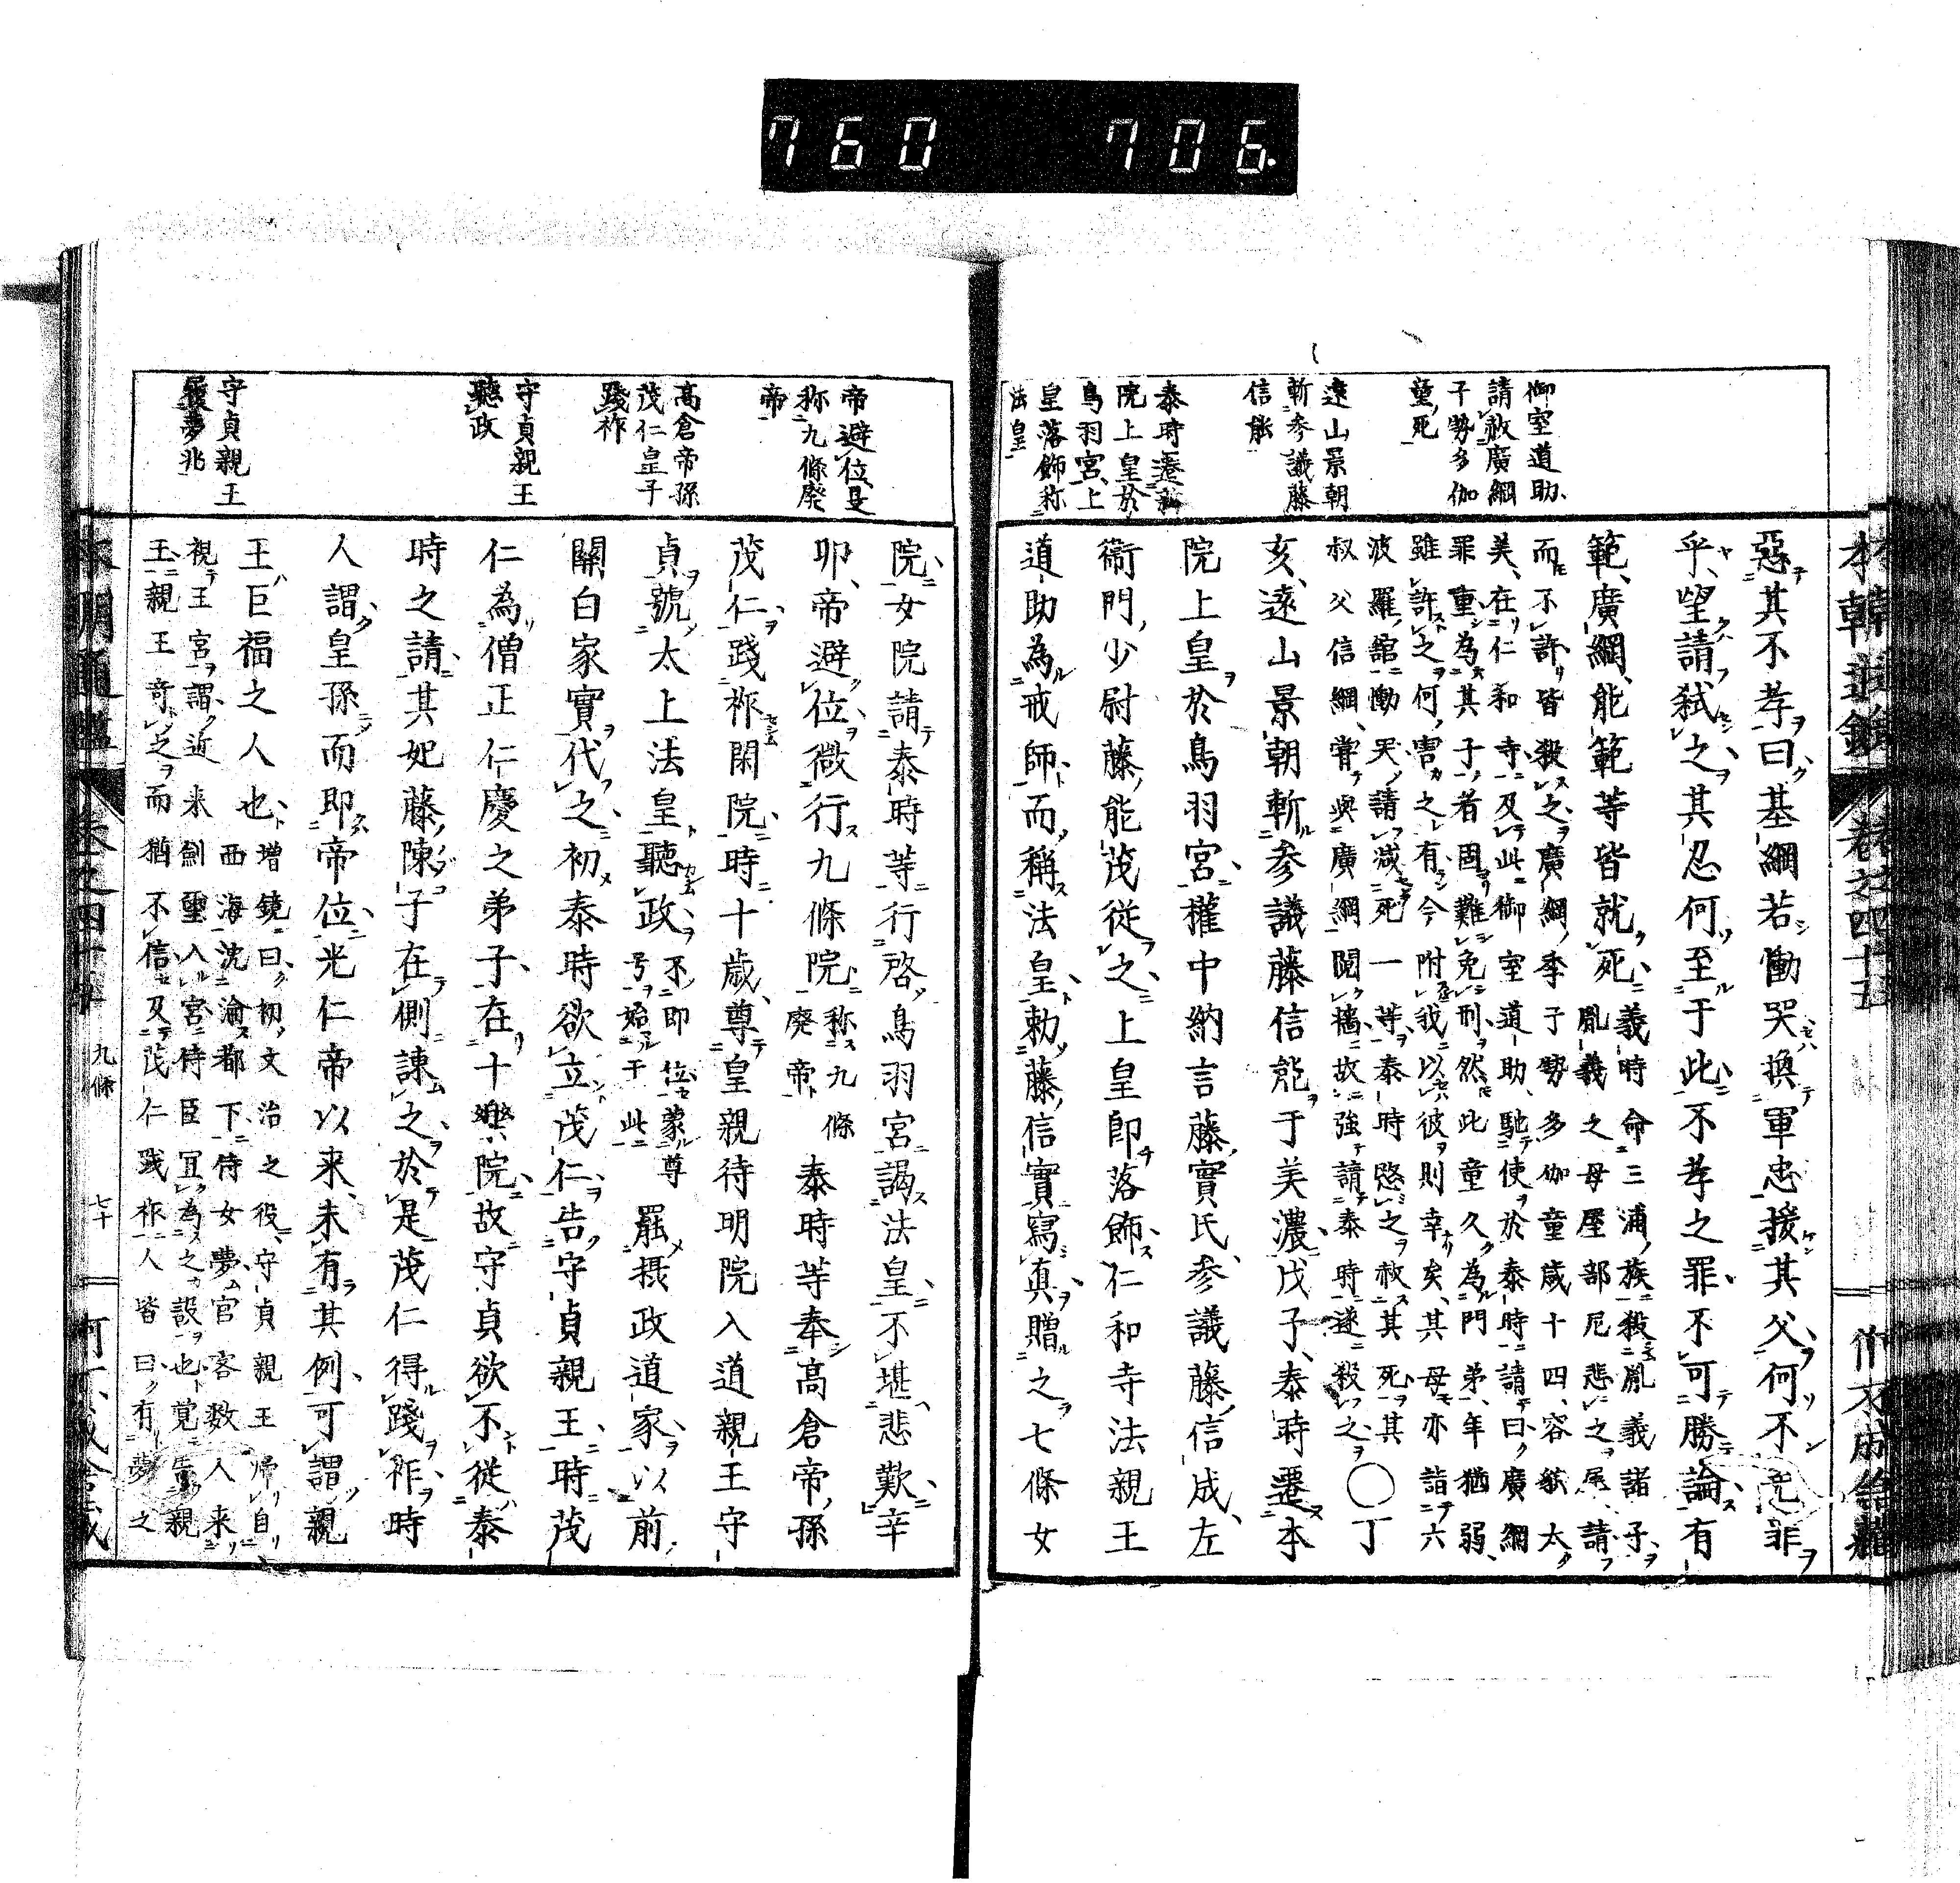 760 706.
本朝通鑑 卷之四十五
御室道助
請赦廣綱
子勢多伽
童死
遠山景朝
斬參議藤
信能
泰時遷新
院上皇於
鳥羽宮上
皇落飾称
法皇
惡其不孝曰基綱若慟哭換軍忠援其父何不免罪
乎望請弑之其忍何至于此不孝之罪不可勝論有
範廣綱能範等皆就死義時命三浦族殺胤義諸子
胤義之母屋部尼悲之屡請
而不許皆殺之廣綱季子勢多伽童歳十四容㒵太
美在仁和寺及此御室道助馳使於泰時請曰廣綱
罪重為其子者固難免刑然此童久為門弟年猶弱
雖許之何害之有今附我以彼則幸矣其母亦詣六
波羅舘慟哭請減死一等泰時愍之赦其死其
叔父信綱嘗與廣綱鬩墻故強請泰時遂殺之〇丁
亥遠山景朝斬參議藤信能于美濃戊子泰時遷本
院上皇於鳥羽宮權中納言藤實氏參議藤信成左
衞門少尉藤能茂從之上皇即落飾仁和寺法親王
道助為戒師而稱法皇勅藤信實寫真贈之七條女
帝避位是
称九條廢
帝
高倉帝孫
茂仁皇子
踐祚
守貞親王
聽政
守貞親王
履夢兆
院女院請泰時等行啓鳥羽宮謁法皇不堪悲歎辛
卯帝避位微行九條院称九條
廢帝泰時等奉高倉帝孫
茂仁踐祚閑院時十歳尊皇親待明院入道親王守
貞號太上法皇聽政不即位蒙尊
号始于此罷摂政道家以前
關白家實代之初泰時欲立茂仁告守貞親王時茂
仁為僧正仁慶之弟子在十樂院故守貞欲不從泰
時之請其妃藤陳子在側諌之於是茂仁得踐祚時
人謂皇孫而即帝位光仁帝以来未有其例可謂親
王巨福之人也増鏡曰初文治之役守貞親王帰自
西海沈淪都下侍女夢官客数人来
視王宮謂近来劍璽入宮侍臣冝為之設也覚告親
王親王奇之而猶不信及茂仁践祚人皆曰有夢之
本朝通鑑 卷之四十五 九條 七十